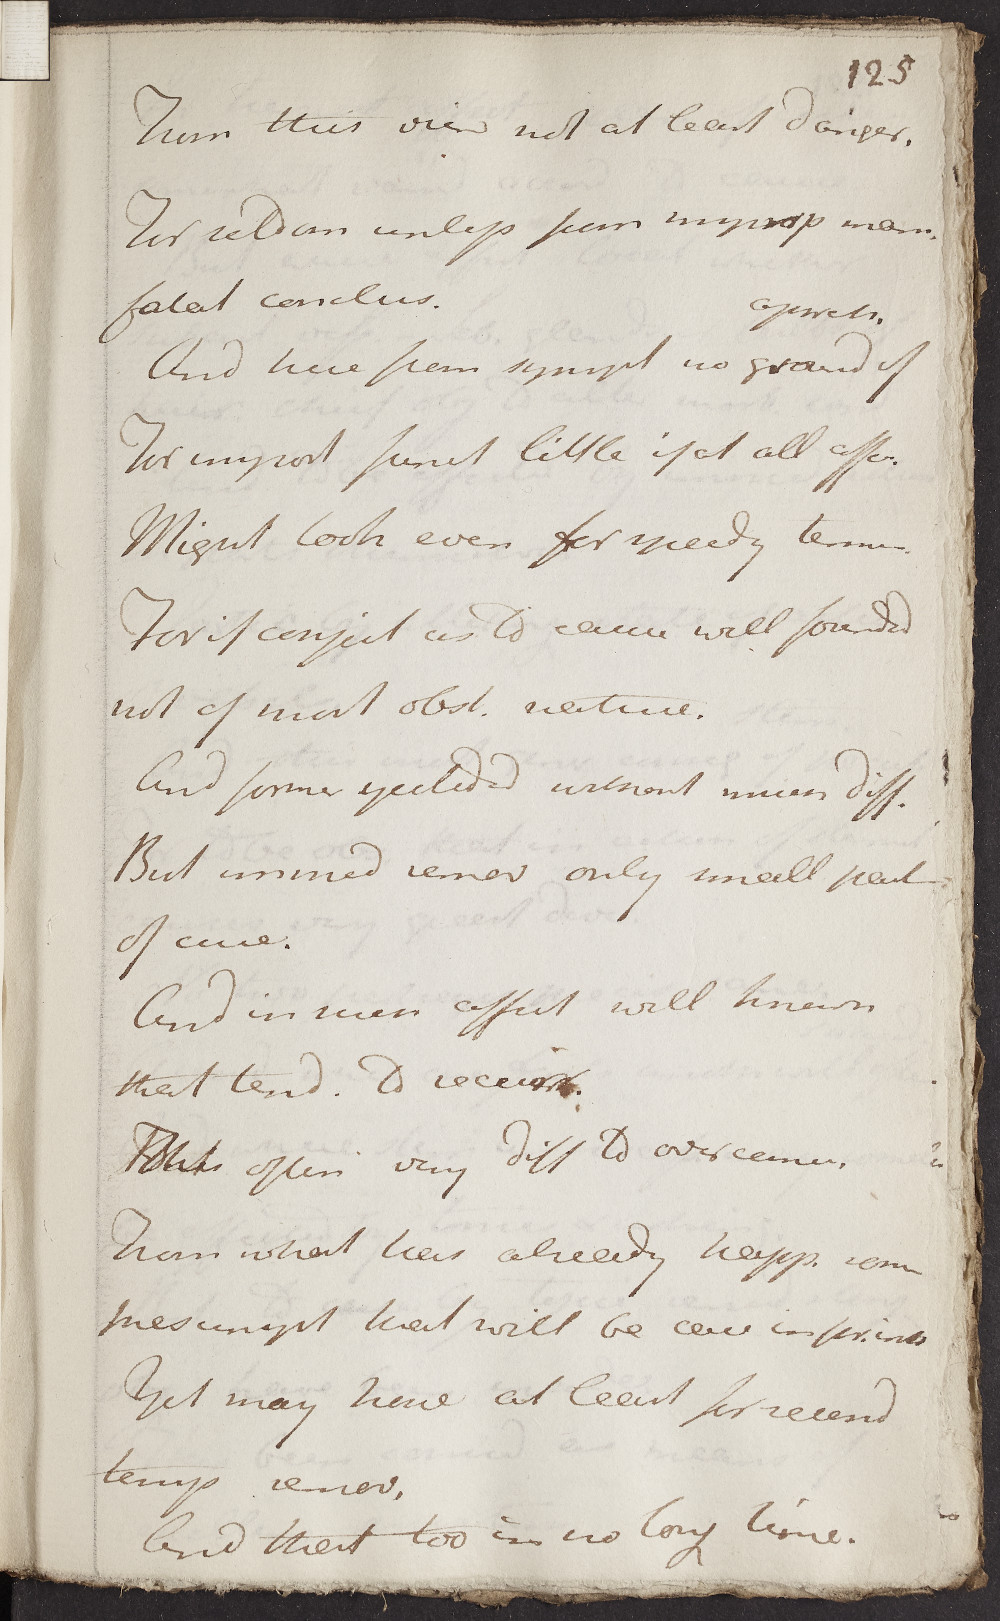 125
From this view not at least danger.
For seldom unless from improp mem.
fatal conclus.
appreh.
And here from sympt no ground of
For import funct little if at all affec.
Might look even for speedy termin.
For if conject as to cause well founded
not of most obst. nature.
And former yielded without much diff.
But immed remov only small part
of cure.
And in such affect well known
that tend. to recurr.
This often very diff to overcome.
From what has already happ. some
presumpt that will be case in
Yet may hope at least for second
temp remov.
And that too in no long time.